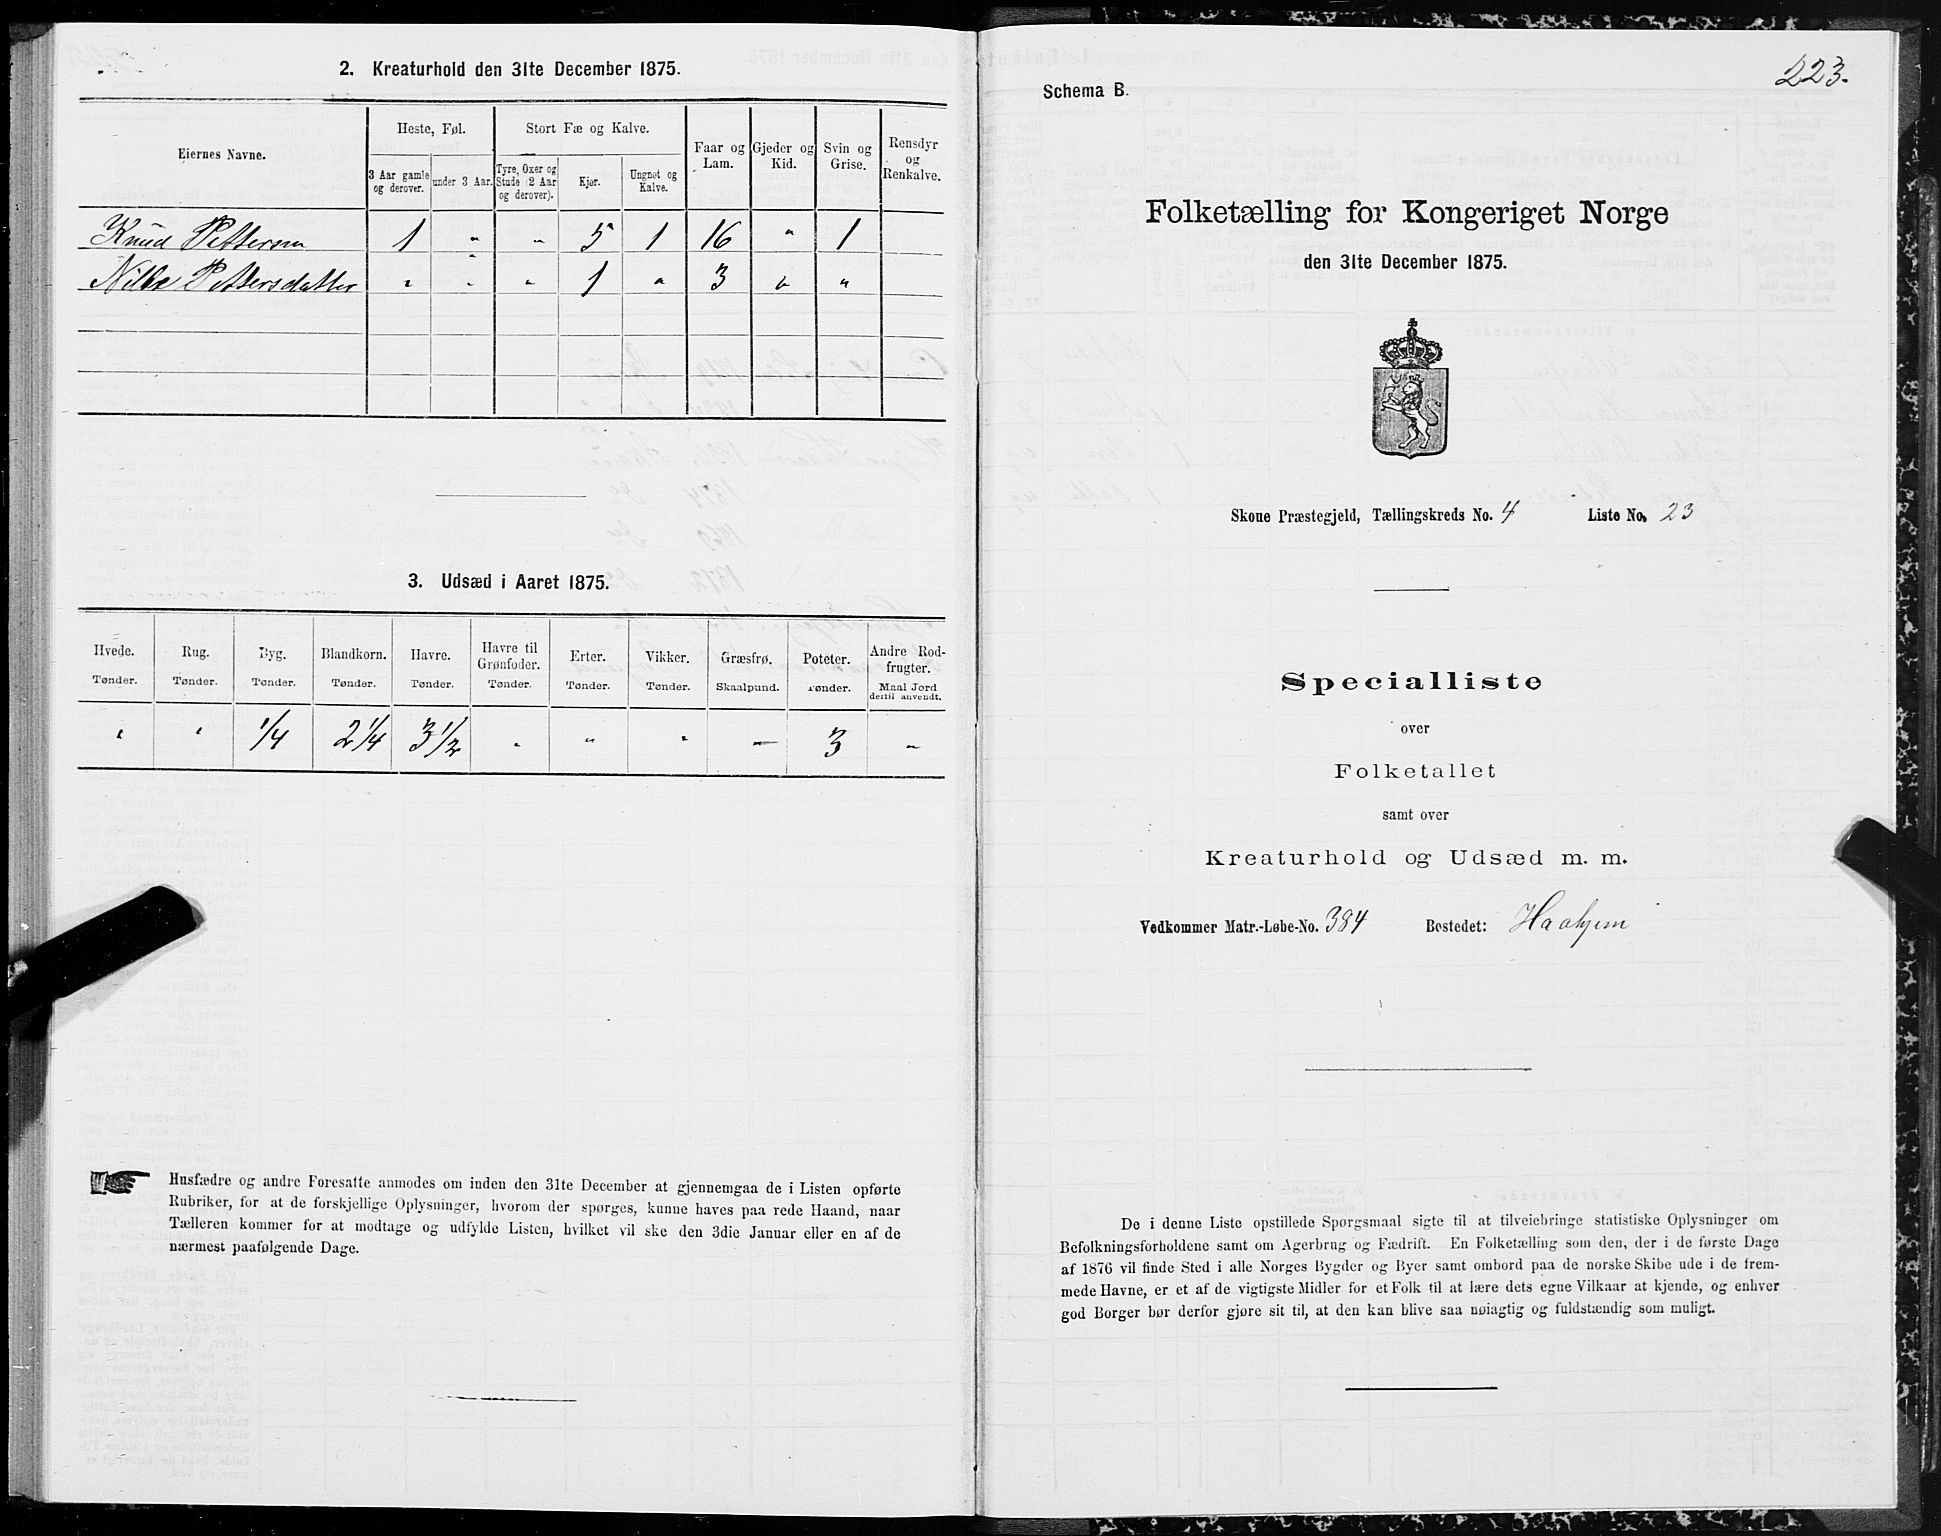 2. Kreaturhold den 31te December 1875.
Eiernes Navne.
Heste, Føl.
Stort Fæ og Kalve.
Faar og Lam.
Gjeder og Kid.
Svin og Grise.
Rensdyr og Renkalve.
3 Aar gamle og derover.
under 3 Aar.
Tyre, Oxer og Stude (2 Aar og derover).
Kjør.
Ungnøt og Kalve.
Knud Pettersen 1 " " 5 1 16 " 1
Pettersdatter " " " 1 " 3 " "
3. Udsæd i Aaret 1875.
Hvede. Rug. Byg. Blandkorn. Havre. Havre til Grønfoder. Erter. Vikker. Græsfrø. Poteter. Andre Rodfrugter.
Tønder. Tønder. Tønder. Tønder. Tønder. Tønder. Tønder. Tønder. Skaalpund. Tønder. Maal Jord dertil anvendt.
" " 1/4 2 1/4 3 1/2 " " " — 3 "
Husfædre og andre Foresatte anmodes om inden den 31te December at gjennemgaa de i Listen opførte
Rubriker, for at de forskjellige Oplysninger, hvorom der spørges, kunne haves paa rede Haand, naar
Tælleren kommer for at modtage og udfylde Listen, hvilket vil ske den 3die Januar eller en af de
nærmest paafølgende Dage.
223.
Schema B.
Folketælling for Kongeriget Norge
den 31te December 1875.
Skoue Præstegjeld, Tællingskreds No. 4 Liste No. 23
Specialliste
over
Folketallet
samt over
Kreaturhold og Udsæd m. m.
Vedkommer Matr.-Løbe-No. 384 Bostedet: Haahjem
De i denne Liste opstillede Spørgsmaal sigte til at tilveiebringe statistiske Oplysninger om
Befolkningsforholdene samt om Agerbrug og Fædrift. En Folketælling som den, der i de første Dage
af 1876 vil finde Sted i alle Norges Bygder og Byer samt ombord paa de norske Skibe ude i de frem-
mede Havne, er et af de vigtigste Midler for et Folk til at lære dets egne Vilkaar at kjende, og enhver
god Borger bør derfor gjøre sit til, at den kan blive saa nøiagtig og fuldstændig som muligt.